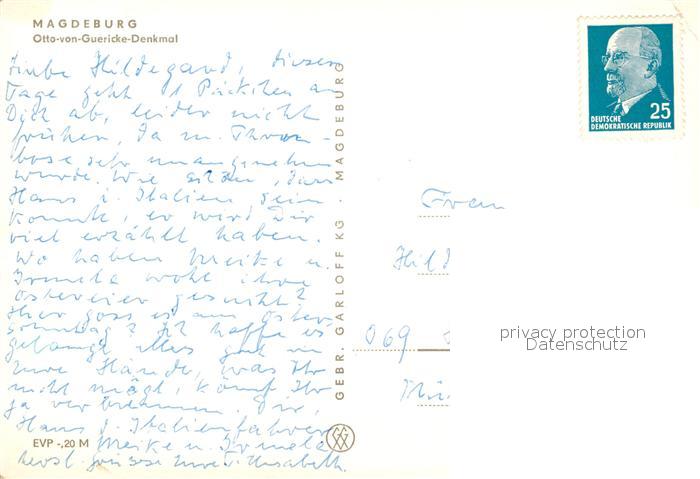 MAGDEBURG
Otto-von-Guericke-Denkmal
Liebe Hildegard, diesen
Tage geht 1 Päckchen an
Dich ab, leider nicht
früher, da m. Throm-
bose sehr unangenehm
wurde. Wie schön, dass
Hans i. Italien sein
konnte, er wird Dir
viel erzählt haben.
Wo haben Meike u.
Irmela wohl ihre
Ostereier gesucht?
Hier goss es am Oster-
sonntag? Ich hoffe es
gelangt alles gut in
Eure Hände, was Ihr
nicht mögt, könnt Ihr
ja verbrennen. Dir,
Hans d. Italienfahrer
Meike u. Irmela
herzl. Grüsse Eure T. Elisabeth.
EVP -,20 M
GEBR. GARLOFF KG MAGDEBURG
DEUTSCHE
DEMOKRATISCHE REPUBLIK
25
Frau
Hild
069
privacy protection
Datenschutz